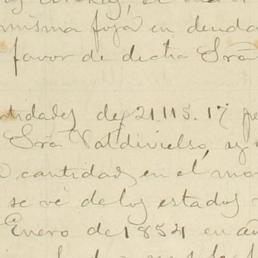 misma foja en deuda
favor de dicha Sra
tidades de 21,115.17 pe
Sra Valdivielso, y
cantidad en el mo
se vé de los estados
Enero de 1854 en añ